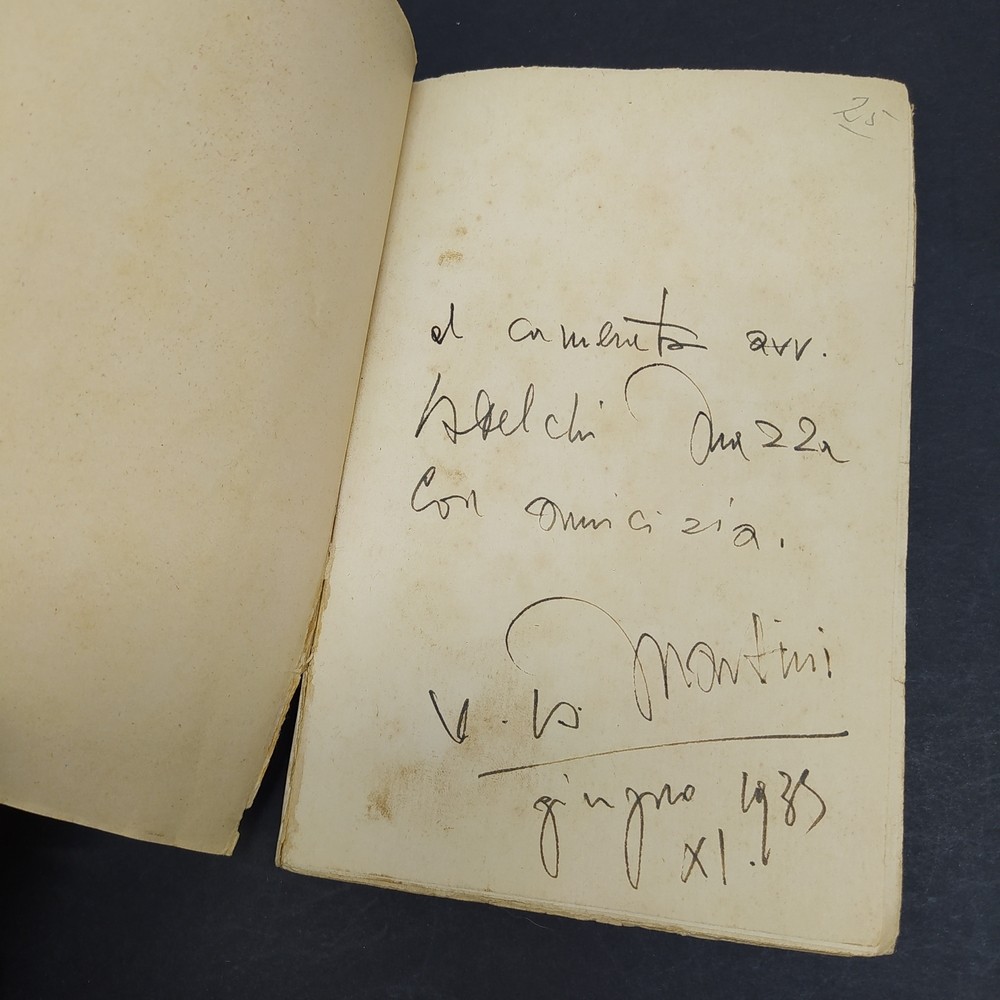 25
al camerata avv.
Adelchi Mazza
con amicizia.
Martini
giugno 1933
XI.